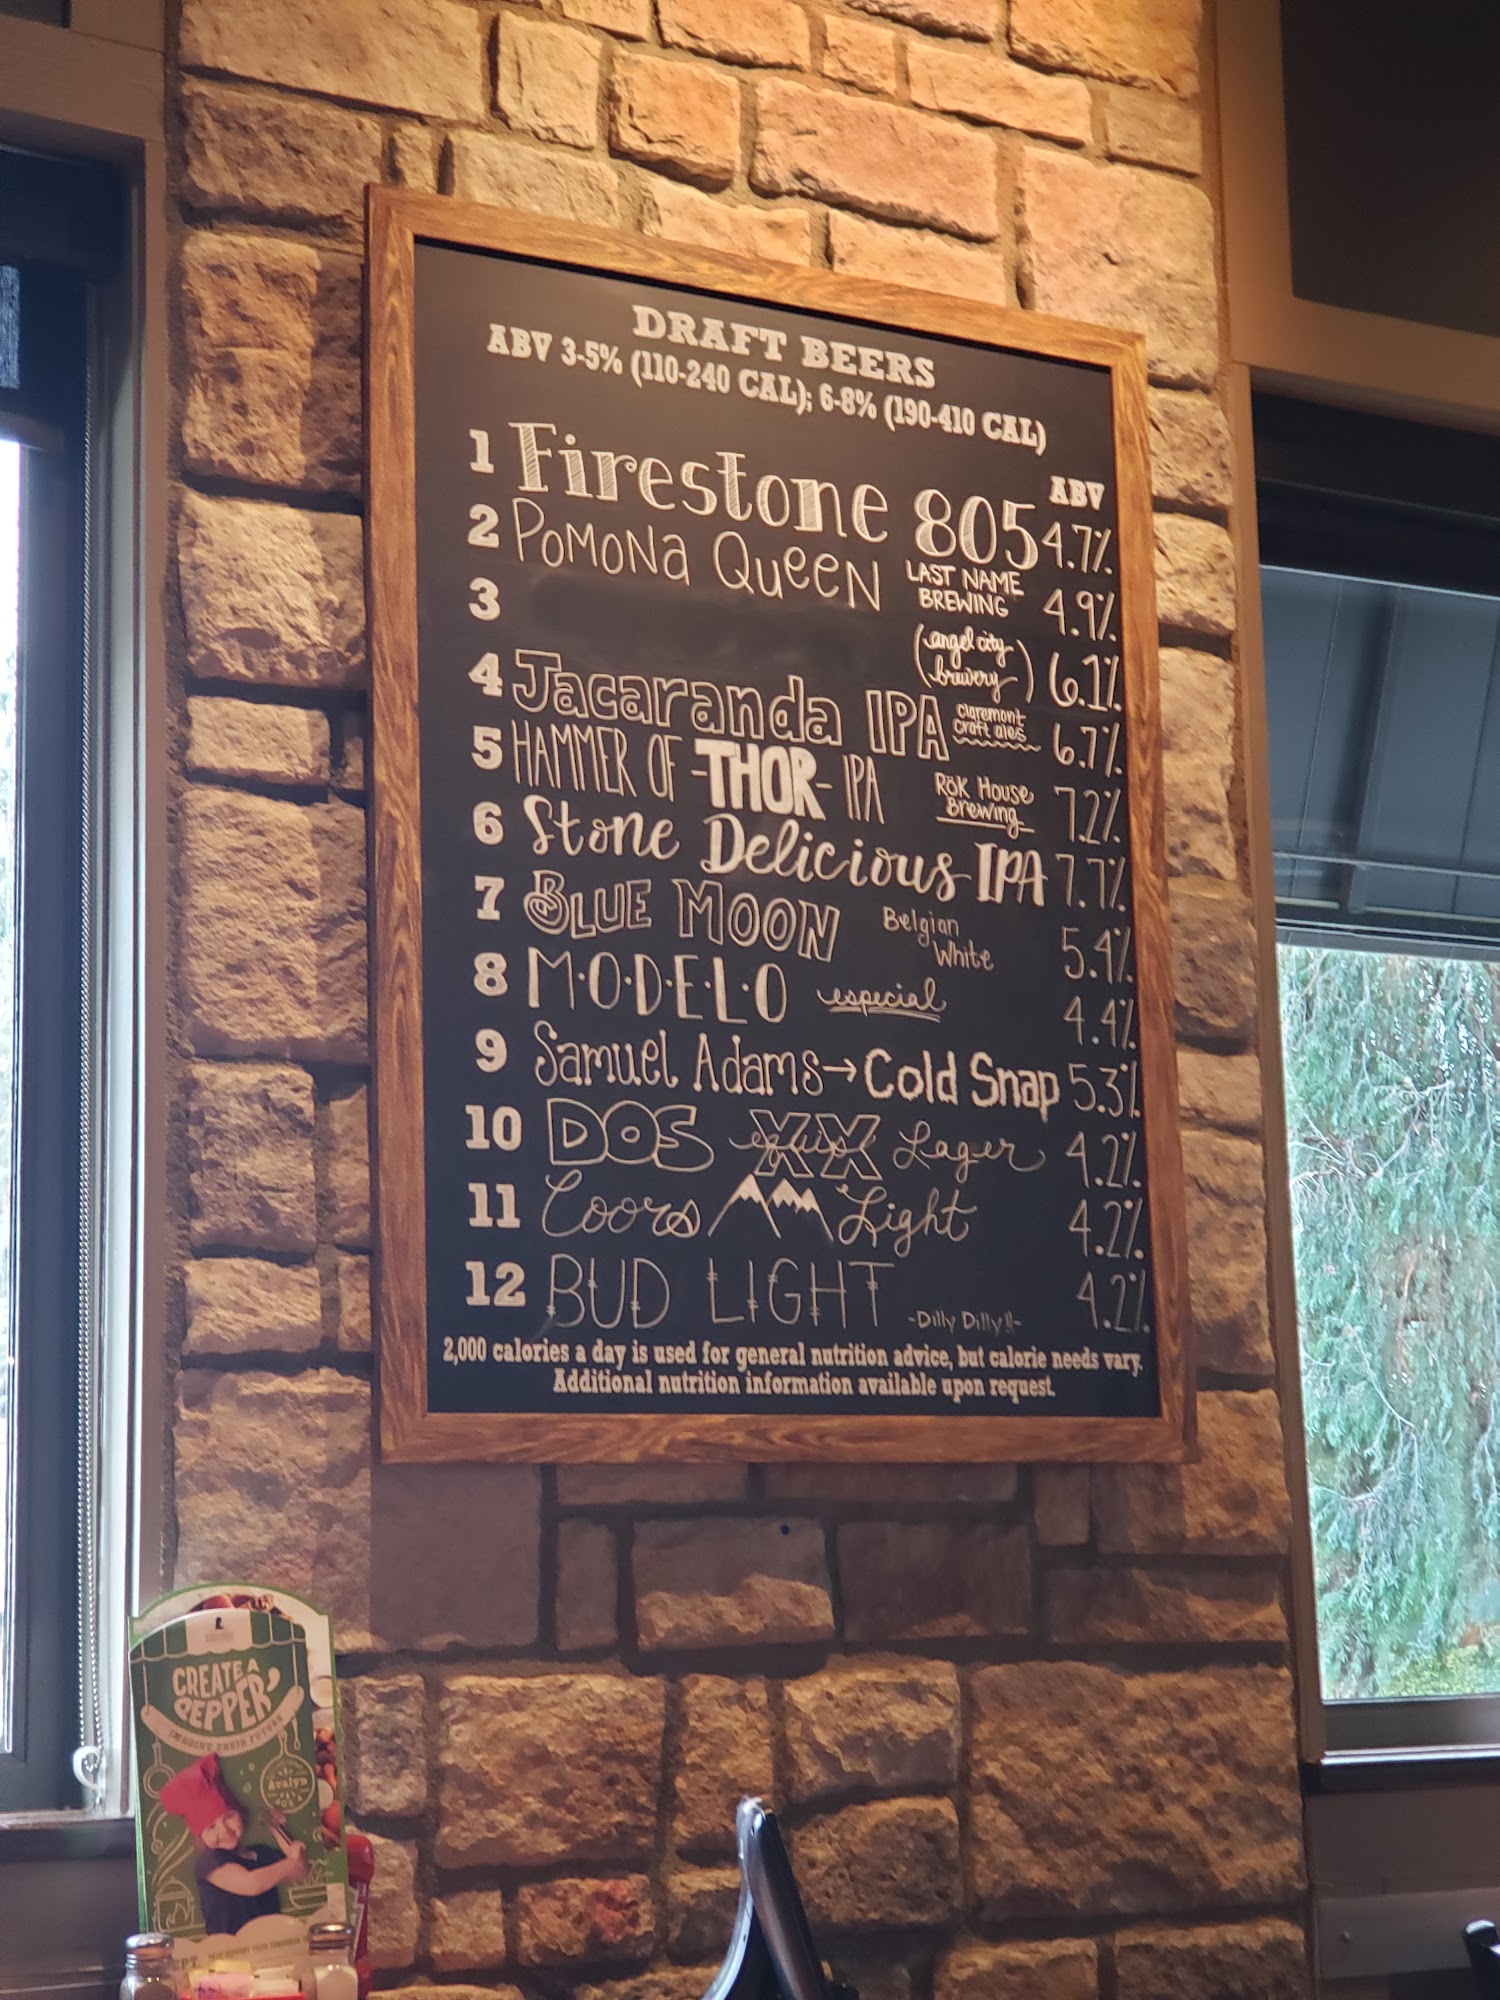 DRAFT BEERS
ABV 3-5% (110-240 CAL); 6-8% (190-410 CAL)
ABV
1 Firestone 805 4.7%
2 Pomona Queen LAST NAME BREWING 4.9%
3 (angel city brewery) 6.1%
4 Jacaranda IPA Claremont Craft ales 6.7%
5 HAMMER OF -THOR- IPA RöK House Brewing 7.2%
6 Stone Delicious IPA 7.7%
7 BLUE MOON Belgian White 5.4%
8 M·O·D·E·L·O especial 4.4%
9 Samuel Adams→Cold Snap 5.3%
10 DOS XX Lager 4.2%
11 Coors Light 4.2%
12 BUD LIGHT -Dilly Dilly!!- 4.2%
2,000 calories a day is used for general nutrition advice, but calorie needs vary.
Additional nutrition information available upon request.
CREATE A
PEPPER,
IMAGINE THEIR FUTURE
Avalyn